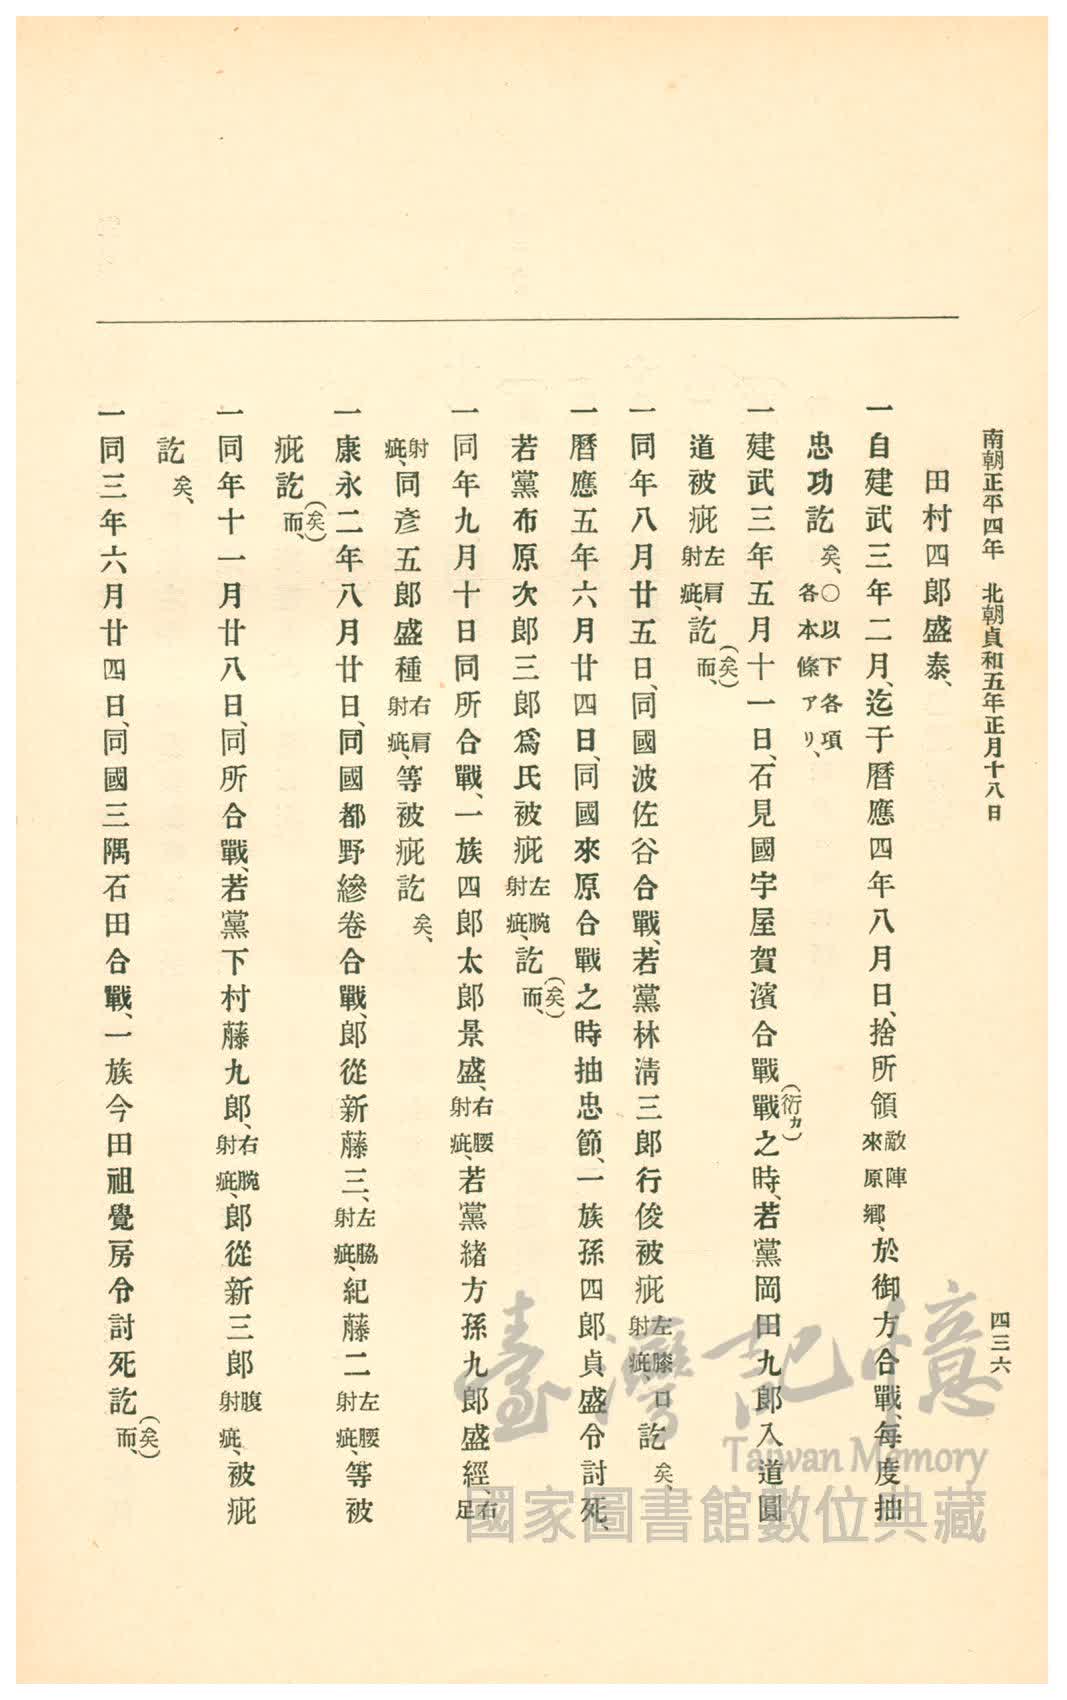 南朝正平四年　北朝貞和五年正月十八日
四三六
田村四郎盛泰、
一自建武三年二月、迄于曆應四年八月日、捨所領敵陣來原鄉、於御方合戰、每度抽
忠功訖矣、〇以下各項各本條アリ、
一建武三年五月十一日、石見國宇屋賀濱合戰戰(衍カ)之時、若黨岡田九郎入道圓
道被疵左肩射疵、訖而、(矣)
一同年八月廿五日、同國波佐谷合戰、若黨林淸三郎行俊被疵左膝口射疵、訖矣、
一曆應五年六月廿四日、同國來原合戰之時抽忠節、一族孫四郎貞盛令討死、
若黨布原次郎三郎爲氏被疵左腕射疵、訖而、(矣)
一同年九月十日同所合戰、一族四郎太郎景盛、右腰射疵、若黨緒方孫九郎盛經、右足
射疵、同彥五郎盛種右肩射疵、等被疵訖矣、
一康永二年八月廿日、同國都野縿卷合戰、郎從新藤三、左脇射疵、紀藤二左腰射疵、等被
疵訖而、(矣)
一同年十一月廿八日、同所合戰、若黨下村藤九郎、右腕射疵、郎從新三郎腹射疵、被疵
訖矣、
一同三年六月廿四日、同國三隅石田合戰、一族今田祖覺房令討死訖而、(矣)
臺灣記憶
Taiwan Memory
國家圖書館數位典藏